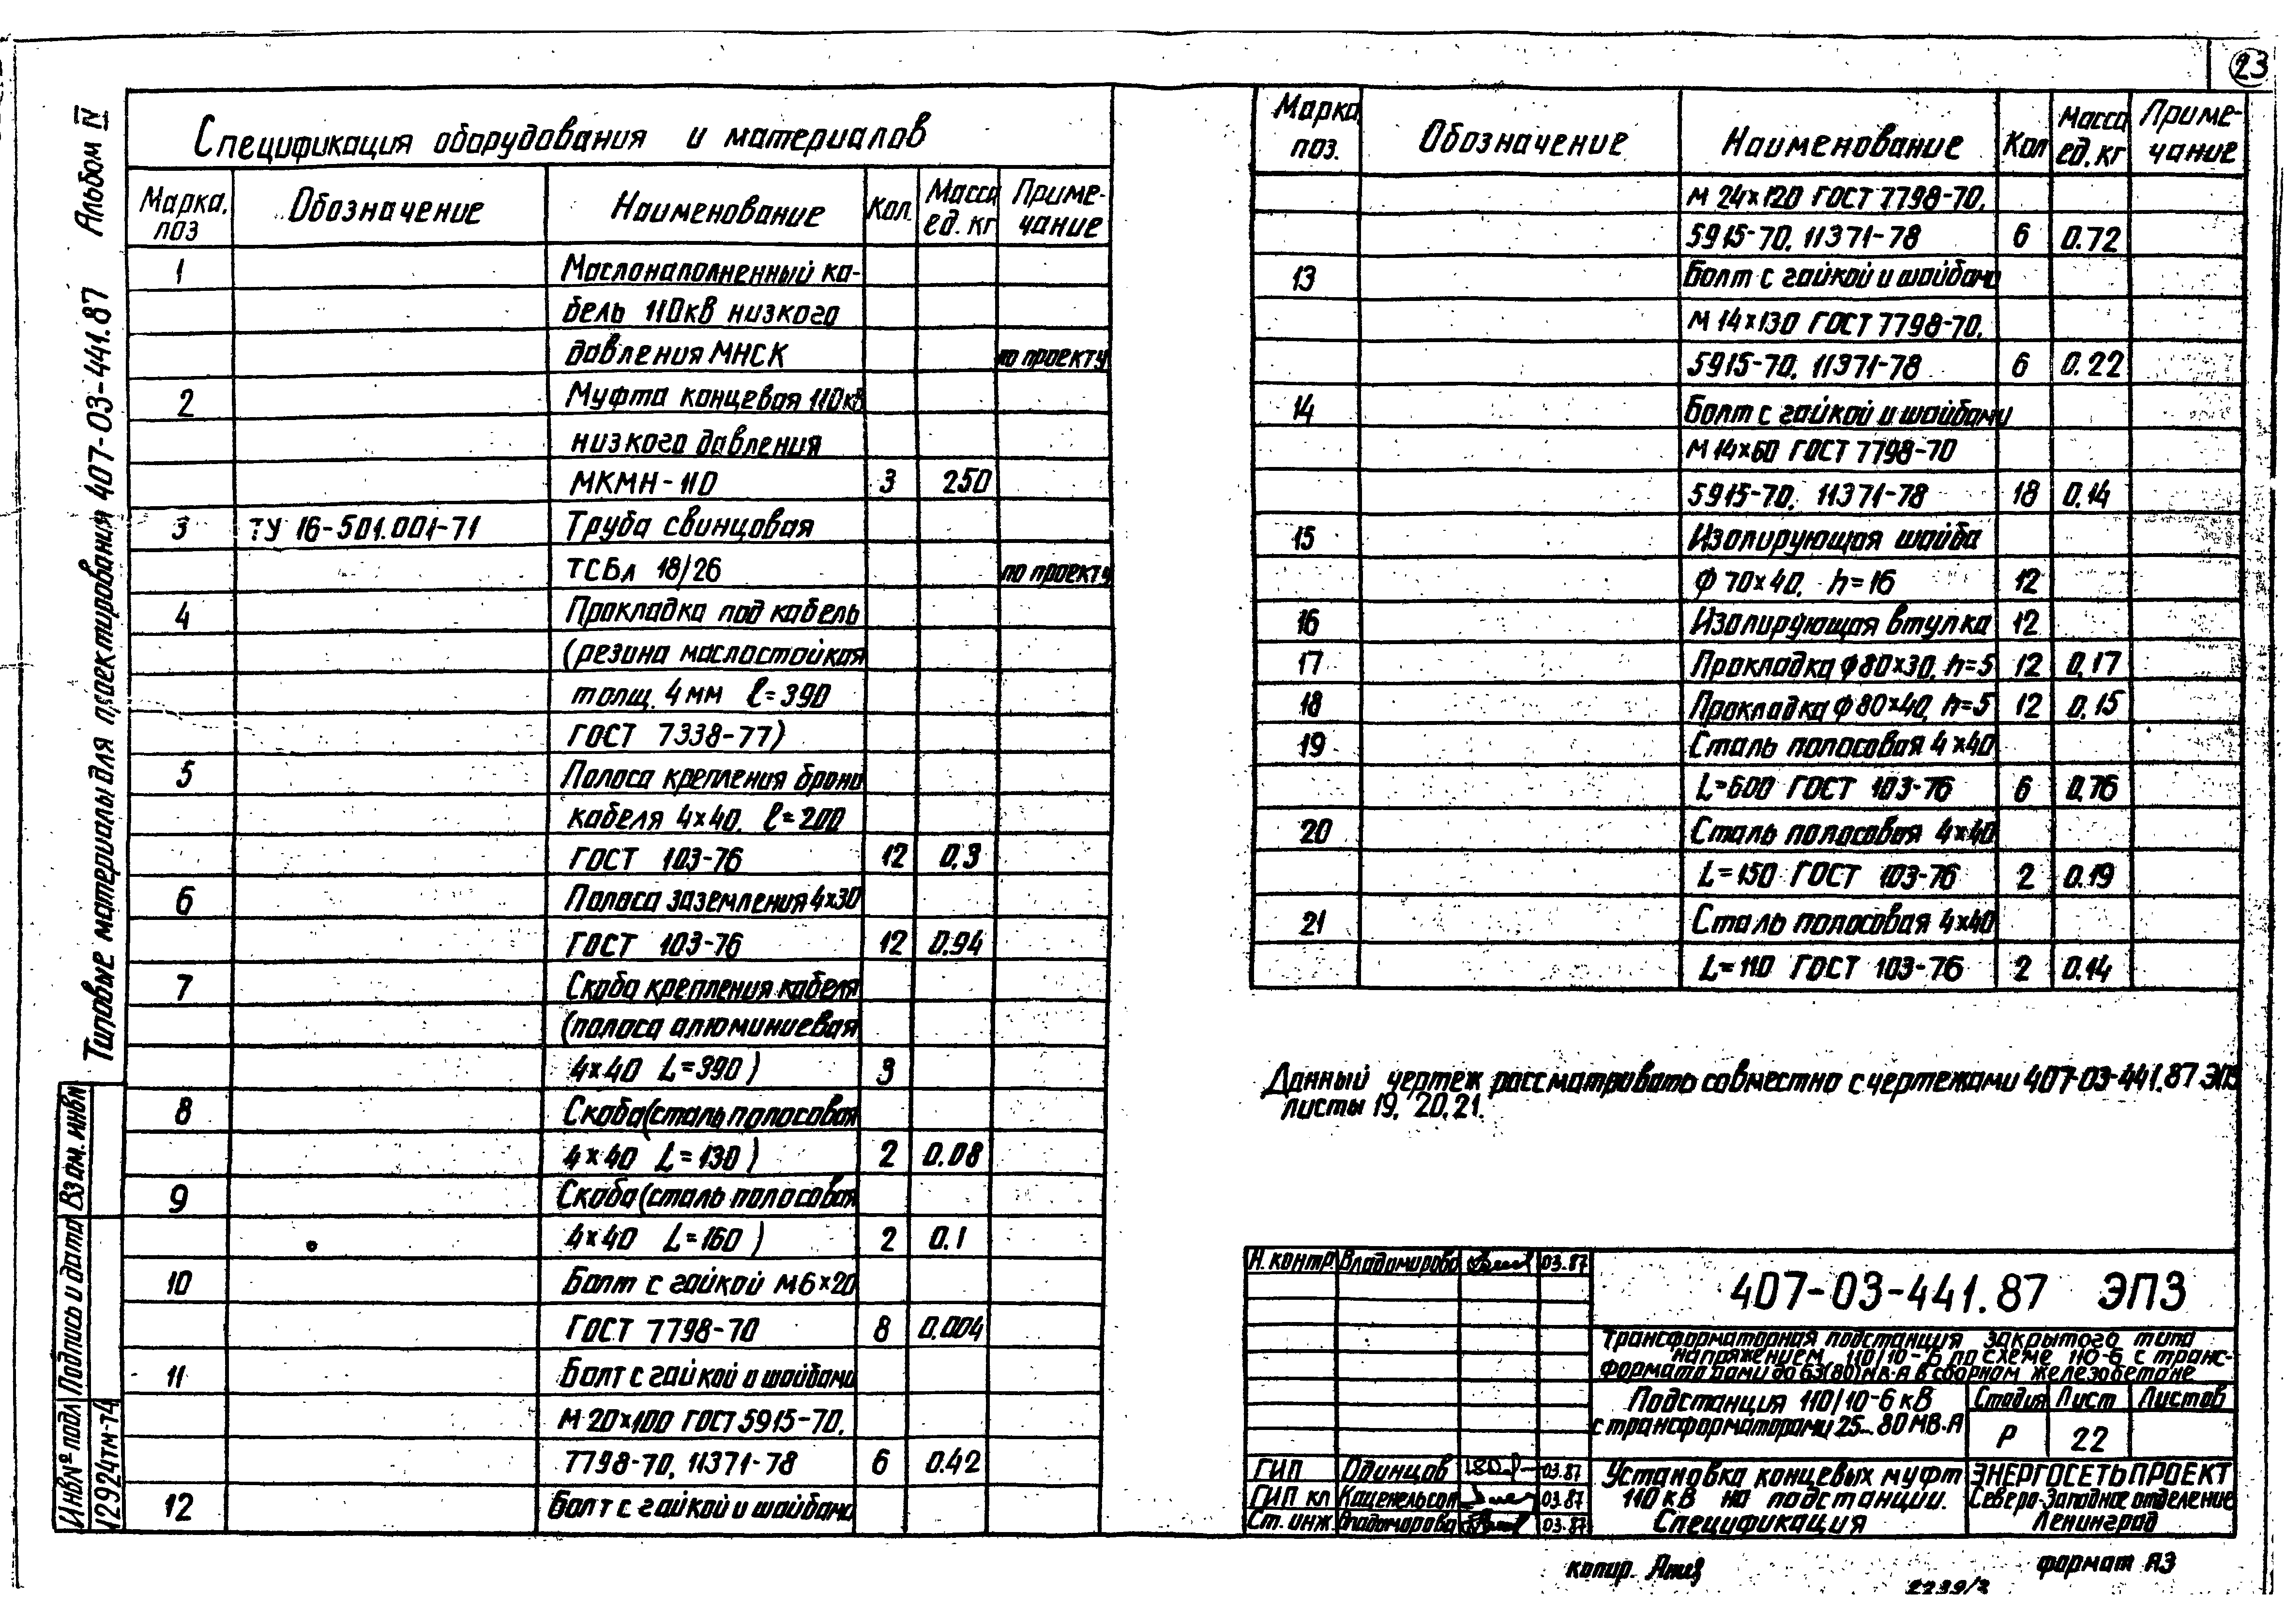 23
Альбом IV
Типовые материалы для проектирования 407-03-441.87
Взам. инв№
Подпись и дата
Инв№ подл
12924тм-т4
Спецификация оборудования и материалов
Марка, поз Обозначение Наименование Кол. Масса ед. кг Приме-чание
1 Маслонаполненный ка-
бель 110кв низкого
давления МНСК по проекту
2 Муфта концевая 110кв
низкого давления
МКМН-110 3 250
3 ТУ 16-501.001-71 Труба свинцовая
ТСБл 18/26 по проекту
4 Прокладка под кабель
(резина маслостойкая
толщ. 4мм ℓ=390
ГОСТ 7338-77)
5 Полоса крепления брони
кабеля 4×40, ℓ=200
ГОСТ 103-76 12 0.3
6 Полоса заземления 4×30
ГОСТ 103-76 12 0.94
7 Скоба крепления кабеля
(полоса алюминиевая
4×40 L=390) 3
8 Скоба (сталь полосовая
4×40 L=130) 2 0.08
9 Скоба (сталь полосовая
4×40 L=160) 2 0.1
10 Болт с гайкой М6×20
ГОСТ 7798-70 8 0.004
11 Болт с гайкой и шайбами
М 20×100 ГОСТ 5915-70,
7798-70, 11371-78 6 0.42
12 Болт с гайкой и шайбами
Марка поз. Обозначение Наименование Кол Масса ед. кг Приме-чание
М 24×120 ГОСТ 7798-70,
5915-70, 11371-78 6 0.72
13 Болт с гайкой и шайбами
М 14×130 ГОСТ 7798-70,
5915-70, 11371-78 6 0.22
14 Болт с гайкой и шайбами
М 14×60 ГОСТ 7798-70
5915-70, 11371-78 18 0.14
15 Изолирующая шайба
Ф 70×40, h=16 12
16 Изолирующая втулка 12
17 Прокладка Ф80×30, h=5 12 0,17
18 Прокладка Ф80×40, h=5 12 0,15
19 Сталь полосовая 4×40
L=600 ГОСТ 103-76 6 0,76
20 Сталь полосовая 4×40
L=150 ГОСТ 103-76 2 0.19
21 Сталь полосовая 4×40
L=110 ГОСТ 103-76 2 0.14
Данный чертеж рассматривать совместно с чертежами 407-03-441.87 ЭПЗ
листы 19, 20,21.
Н. контр Владимирова 03.87
407-03-441.87 ЭПЗ
Трансформаторная подстанция закрытого типа
напряжением 110/10-6 по схеме 110-6 с транс-
форматорами до 63(80)мв·А в сборном железобетоне
Подстанция 110/10-6 кв
с трансформаторами 25...80 МВ·А
Стадия Лист Листов
Р 22
ГИП Одинцов 03.87
ГИП кл Каценельсон 03.87
Ст. инж. Владимирова 03.87
Установка концевых муфт
110 кв на подстанции.
Спецификация
ЭНЕРГОСЕТЬПРОЕКТ
Северо-Западное отделение
Ленинград
копир.
формат А3